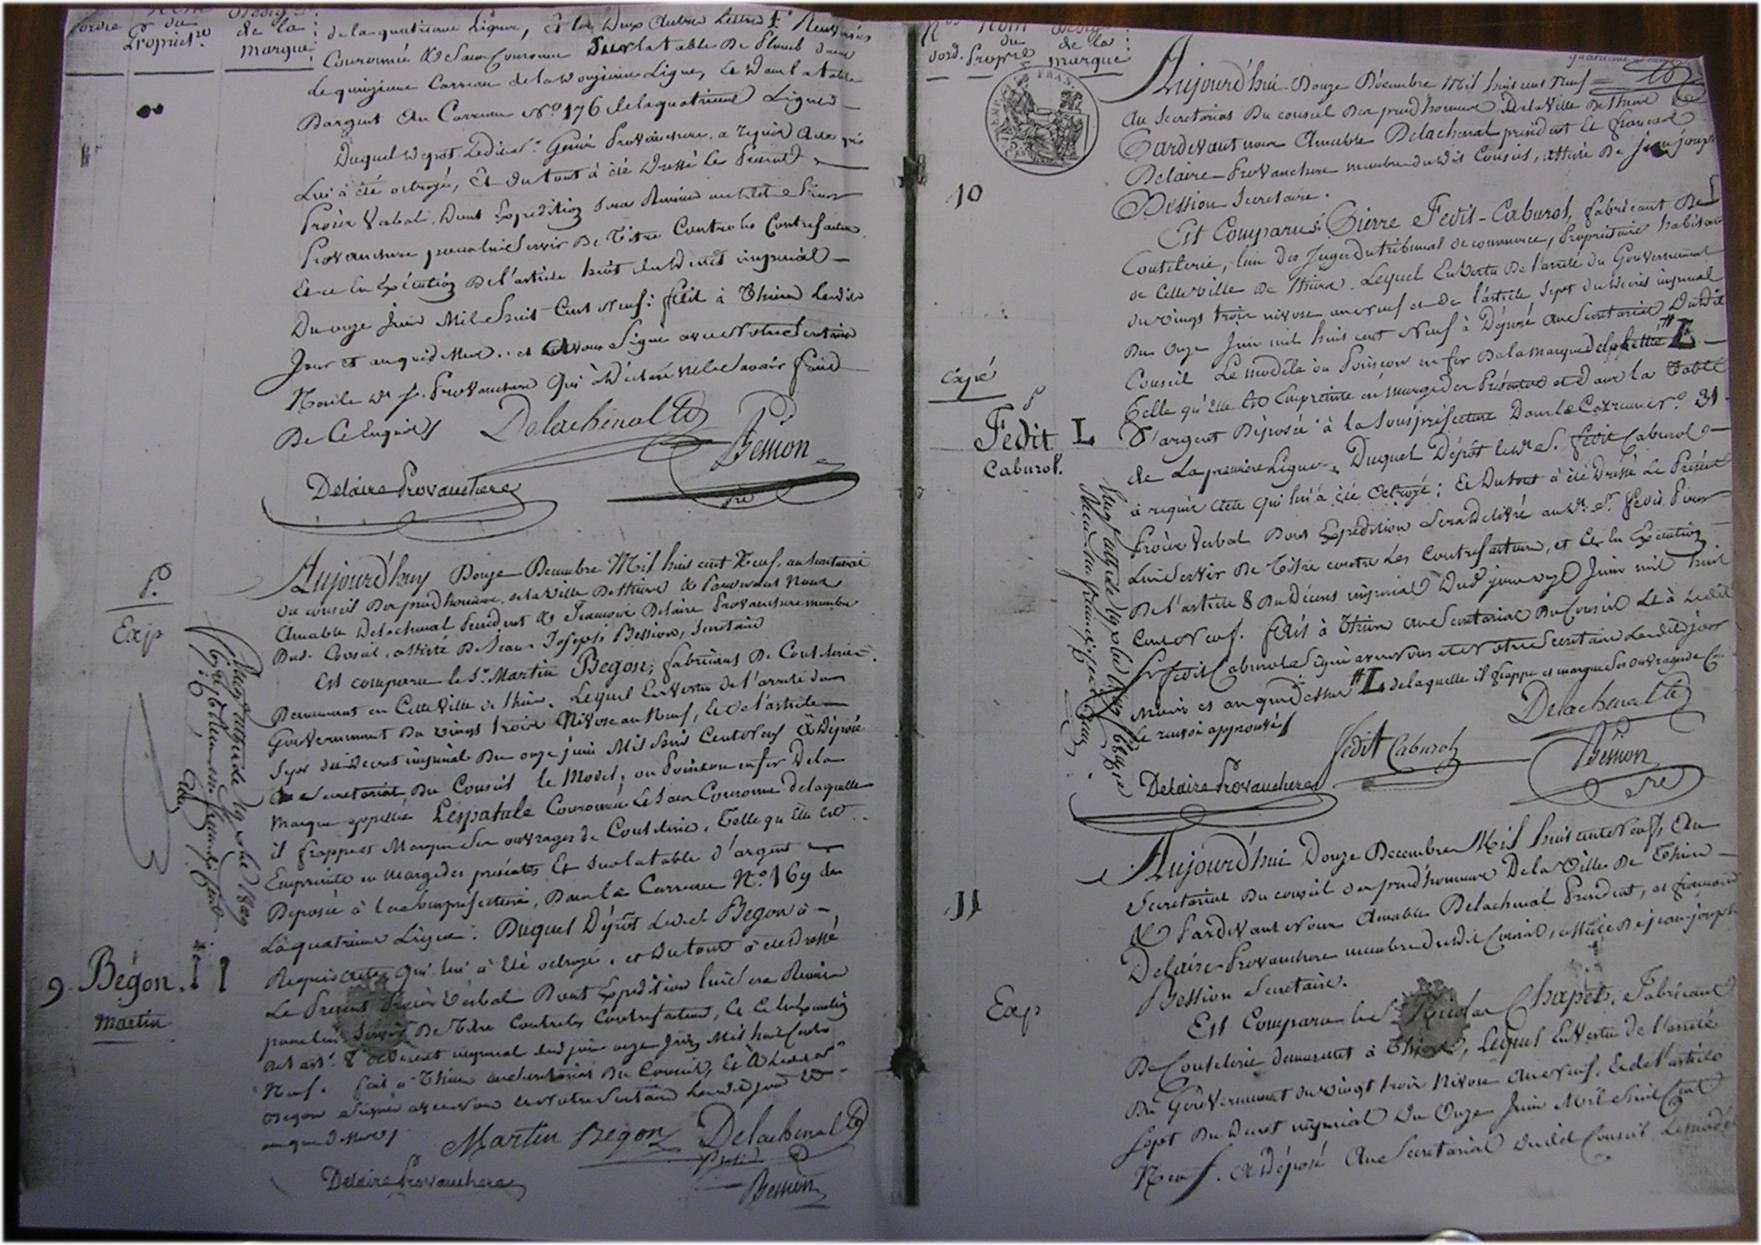 d'ordre
Nom du Propriet.re
désign. de la marque
de la quatrieme Ligne, et les deux autres Lettres
Couronnée de Sa Couronne sur la table de Plomb dans
le quinzieme Carreau de la onzieme Ligne, et dans la table
Dargent au Carreau N.o 176 de la quatrieme Ligne
Duquel depot Ledit S.r Genès Provanchere a requis acte qui
Lui à été octroyé, Et du tout à été Dressé le Présent
Procès Verbal. Dont Expedition sera Remise audit Sieur
Provanchere pour lui Servir De Titre Contre les Contrefacteurs
Et ce En Exécution De l'article huit du Décret impérial
Du onze Juin Mil huit Cent Neuf: fait à Thiers Lesdits
Jour et an que dessus. et avons Signé avec Notre Secretaire
Non le d. S. Provanchere Qui à Déclaré ne le Savoir faire
De Ce Enquis
Delachenal
Bession
Sre
Delaire Provanchere
P.
Exp
Aujourd'huy Douze Decembre Mil huit cent Neuf, au Secretariat
du conseil Des prud'hommes de la Ville de Thiers & Pardevant Nous
Amable Delachenal President & François Delaire Provanchere membre
Dud. Conseil, assisté De Jean Joseph Bession, Secretaire
Est comparu le S.r Martin Begon, fabricant De Coutelerie
Demeurant en Cette Ville de Thiers. Lequel En Vertu de l'arreté du
Gouvernement Du vingt trois Nivose an Neuf, Et de l'article
Sept du Decret impérial Du onze juin Mil huit Cent Neuf à Déposé
au Secretariat Du Conseil le Model, ou Poinson en fer De la
Marque appellée L'espatule Couronnée de Sa Couronne de laquelle
il frappe et Marque Ses ouvrages de Coutelerie. Telle qu'Elle est
Empreinte en marge des présents Et sur la table d'argent
Déposée à la Sousprefecture, Dans le Carreau N.o 169 de
La quatrieme Ligne: Duquel Dépôt Ledit Begon à
Requis acte Qui lui à été octroyé. et du tout à été dressé
Le Présent Procès Verbal Dont Expedition lui sera Remise
pour lui Servir De Titre Contre les Contrefacteurs, Et Ce En Exécution
de l'art. 8 du Decret impérial dud. jour onze Juin Mil huit Cent
Neuf. fait à Thiers au Secretariat Du Conseil, Et à Ledit
Begon Signé avec nous et notre Secretaire Lesdits jour et
an que dessus
9
Begon.
Martin
Martin Begon
Delachenal
Presid.
Delaire Provanchere
Bession
Nos d'ord.
Nom du Propre
désig. de la marque
10
Aujourd'hui Douze Décembre Mil huit cent Neuf
Au Secretariat Du conseil Des prud'hommes De la Ville De Thiers &
Pardevant nous Amable Delachenal président Et François
Delaire Provanchere membre dudit Conseil, assisté De Jean Joseph
Bession Secretaire.
Est Comparu S. Pierre Fedit-Caburol, fabricant De
Coutelerie, l'un Des Juges du tribunal de commerce, Proprietaire habitant
de Cette Ville De Thiers. Lequel En Vertu De l'arreté du Gouvernement
du vingt trois nivose an neuf et de l'article Sept du Décret impérial
Du Onze Juin mil huit cent Neuf à Déposé Au Secretariat Dudit
Conseil Le modèle ou Poinson en fer De la Marque L
Telle qu'Elle Est Empreinte en marge des Présentes et dans la Table
D'argent Déposée à la Sousprefecture Dans le Carreau N.o 31
de La premiere Ligne. Duquel Dépôt led. S. Fedit Caburol
à requis acte Qui lui à été Octroyé; Et Du tout à été Dressé Le Présent
Procès Verbal Dont Expédition Sera délivré aud. S. Fedit Pour
Lui Servir De Titre contre Les Contrefacteurs, et Ce En Exécution
De l'article 8 Du Décret impérial Dud. jour onze Juin mil huit
Cent Neuf. fait à Thiers au Secretariat Du Conseil Et à Ledit
S. Fedit Caburol Signé avec nous et notre Secretaire Lesdits jour
Mois et an que Dessus # L de laquelle il frappe et marque Ses ouvrages de Co.
Le renvoi approuvé
expé
Fedit
Caburol.
L
Fedit Caburol
Delachenal
Delaire Provanchere
Bession
Sre
11
Exp
Aujourd'hui Douze Decembre Mil huit cent Neuf, Au
Secretariat Du conseil Des prud'hommes De la Ville De Thiers
& Pardevant Nous Amable Delachenal President, et François
Delaire Provanchere membre dudit Conseil, assisté De jean joseph
Bession Secretaire.
Est Comparu le S. Nicolas Chapet, Fabricant
De Coutelerie demeurant à Thiers, Lequel En Vertu de l'arreté
Du Gouvernement Du vingt trois Nivose An neuf, Et de l'article
Sept Du Decret impérial Du Onze Juin Mil huit Cent
Neuf. à déposé Au Secretariat Dudit Conseil Le modele